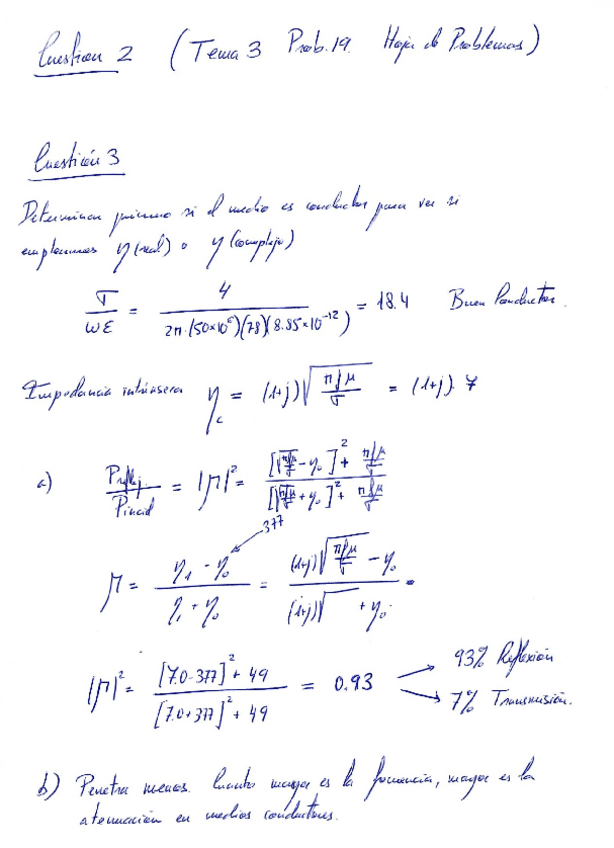 Cuestion 2 (Tema 3 Prob. 19. Hoja de Problemas)
Cuestión 3
Determinar primero si el medio es conductor para ver si
empleamos η (real) o η (complejo)
σ/ωε = 4/(2π·(50×10⁶)(78)(8.85×10⁻¹²)) = 18.4 Buen Conductor.
Impedancia intrínseca η_c = (1+j)√(πfμ/σ) = (1+j) 7
a) P reflej./P incid = |Γ|² = ([√(πfμ/σ) - η₀]² + πfμ/σ)/([√(πfμ/σ) + η₀]² + πfμ/σ)
377
Γ = (η₁ - η₀)/(η₁ + η₀) = ((1+j)√(πfμ/σ) - η₀)/((1+j)√ + η₀) =
|Γ|² = ([7.0-377]² + 49)/([7.0+377]² + 49) = 0.93
93% Reflexión
7% Transmisión.
b) Penetra menos. Cuanto mayor es la frecuencia, mayor es la
atenuación en medios conductores.